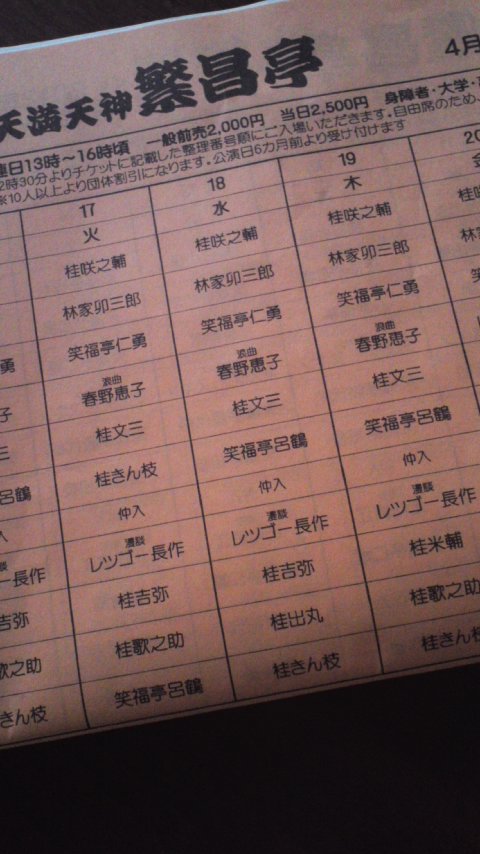 天満天神 繁昌亭 4月
連日13時〜16時頃 一般前売2,000円 当日2,500円 身障者・大学・
2時30分よりチケットに記載した整理番号順にご入場いただきます。自由席のため、
※10人以上より団体割引になります。公演日6カ月前より受け付けます
17
火
桂咲之輔
林家卯三郎
笑福亭仁勇
浪曲
春野恵子
桂文三
桂きん枝
仲入
漫談
レツゴー長作
桂吉弥
桂歌之助
笑福亭呂鶴
18
水
桂咲之輔
林家卯三郎
笑福亭仁勇
浪曲
春野恵子
桂文三
笑福亭呂鶴
仲入
漫談
レツゴー長作
桂吉弥
桂出丸
桂きん枝
19
木
桂咲之輔
林家卯三郎
笑福亭仁勇
浪曲
春野恵子
桂文三
笑福亭呂鶴
仲入
漫談
レツゴー長作
桂米輔
桂歌之助
桂きん枝
20
金
桂
林家
笑
勇
子
三
呂鶴
入
漫談
ゴー長作
吉弥
歌之助
きん枝